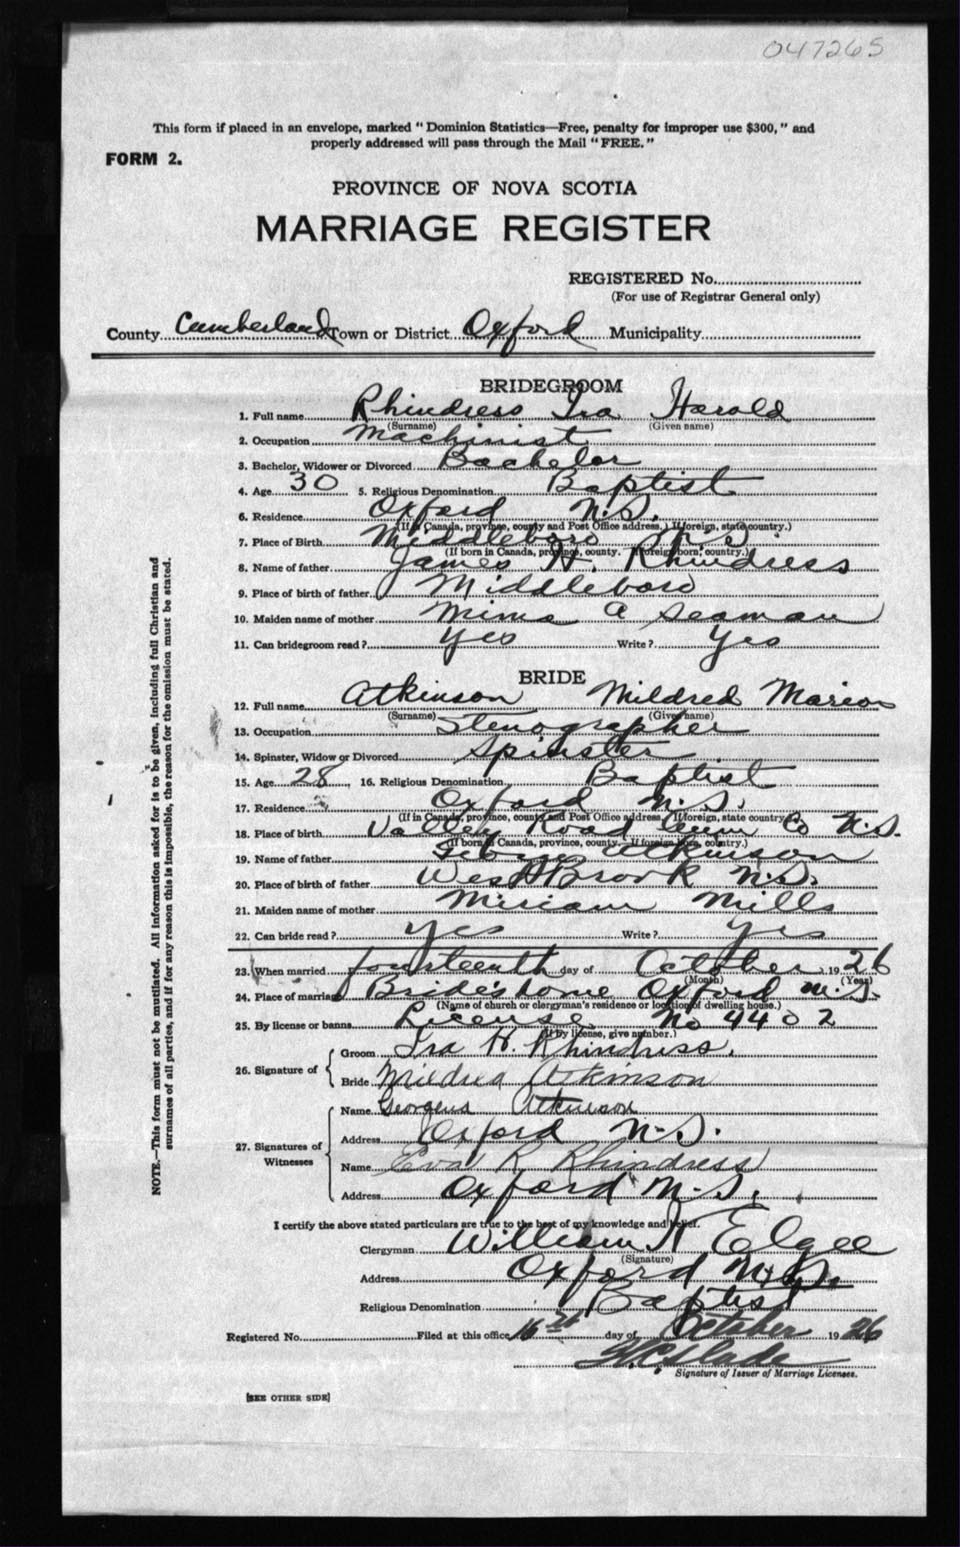 047265
This form if placed in an envelope, marked "Dominion Statistics—Free, penalty for improper use $300," and
properly addressed will pass through the Mail "FREE."
FORM 2.
PROVINCE OF NOVA SCOTIA
MARRIAGE REGISTER
REGISTERED No.
(For use of Registrar General only)
County Cumberland Town or District Oxford Municipality
BRIDEGROOM
1. Full name Rhindress Ira Harold
(Surname) (Given name)
2. Occupation Machinist
3. Bachelor, Widower or Divorced Bachelor
4. Age 30 5. Religious Denomination Baptist
6. Residence Oxford N.S.
(If in Canada, province, county and Post Office address. If foreign, state country.)
7. Place of Birth Middleboro N.S.
(If born in Canada, province, county. If foreign born, country.)
8. Name of father James H. Rhindress
9. Place of birth of father Middleboro
10. Maiden name of mother Mima A Seaman
11. Can bridegroom read? yes Write? yes
BRIDE
12. Full name Atkinson Mildred Marion
(Surname) (Given name)
13. Occupation Stenographer
14. Spinster, Widow or Divorced Spinster
15. Age 28 16. Religious Denomination Baptist
17. Residence Oxford N.S.
(If in Canada, province, county and Post Office address. If foreign, state country.)
18. Place of birth Valley Road Cum Co N.S.
(If born in Canada, province, county.—If foreign born, country.)
19. Name of father George Atkinson
20. Place of birth of father West Brook N.S.
21. Maiden name of mother Miriam Mills
22. Can bride read? yes Write? yes
23. When married fourteenth day of October 1926
(Month) (Year)
24. Place of marriage Bride's home Oxford N.S.
(Name of church or clergyman's residence or location of dwelling house.)
25. By license or banns License No 4402
(If by license, give number.)
26. Signature of
Groom Ira H. Rhindress.
Bride Mildred Atkinson
27. Signatures of Witnesses
Name Atkinson
Address Oxford N.S.
Name Eva R Rhindress
Address Oxford N.S.
I certify the above stated particulars are true to the best of my knowledge and belief.
Clergyman William H Elgee
(Signature)
Address Oxford N.S.
Religious Denomination Baptist
Registered No. Filed at this office 16 day of October 1926
Signature of Issuer of Marriage Licenses.
[SEE OTHER SIDE]
NOTE.—This form must not be mutilated. All information asked for is to be given, including full Christian and
surnames of all parties, and if for any reason this is impossible, the reason for the omission must be stated.